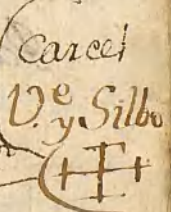 Carcel
V.e y Silbo